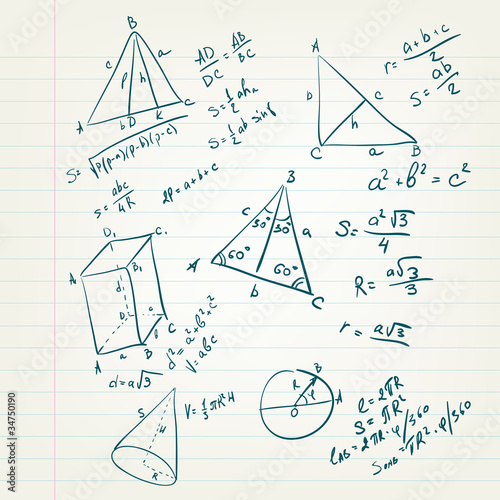 B
c p h a
A b D K C
AD/DC = AB/BC
S=1/2 ah_a
S=1/2 ab sin φ
S= √p(p-a)(p-b)(p-c)
S=abc/4R
2P=a+b+c
A
b c
h
C a B
r=a+b+c/2
S=ab/2
a²+b²=c²
B
c 30° 30° a
A 60° 60° C
b
S=a²√3/4
R=a√3/3
r=a√3
D₁ C₁
A₁ B₁
d
D C
A a B
d=a√3
d²=a²+b²+c²
V=abc
S H
R
V=1/3πR²H
B
R φ A
O
l=2πR
S=πR²
l_AB=2πR·φ/360
S_OAB=πR²·φ/360
Adobe Stock | #34750190